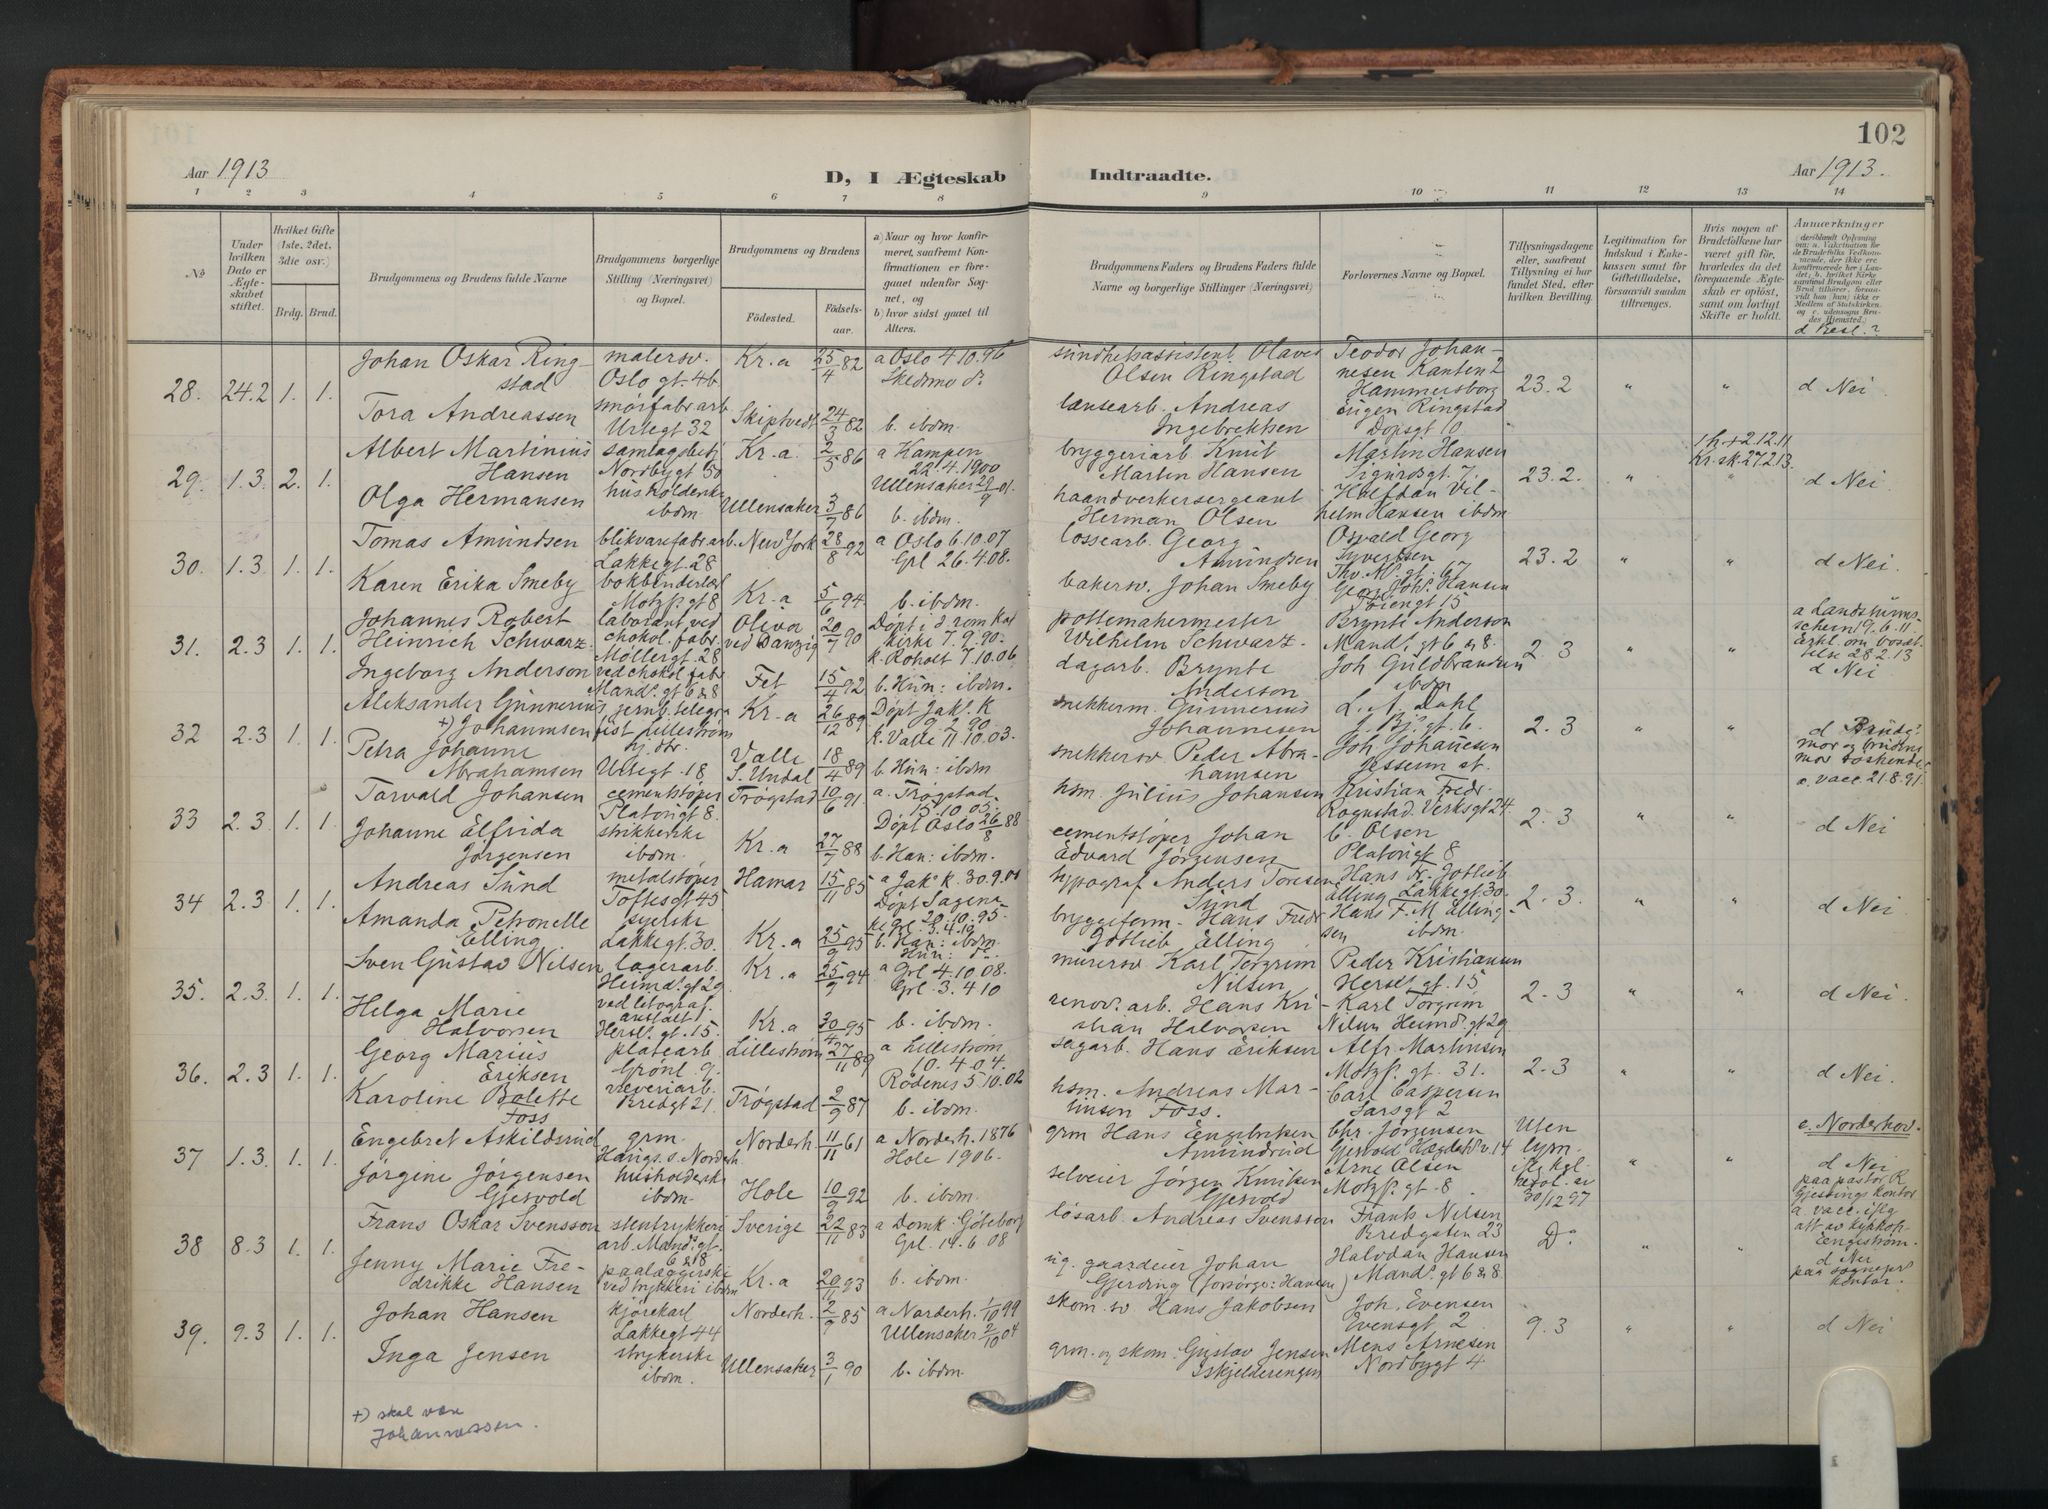 102
Aar 1913
D, I Ægteskab
Indtraadte.
Aar 1913.
1 2 3 4 5 6 7 8 9 10 11 12 13 14
No
Under hvilken Dato er Ægteskabet stiftet.
Hvilket Gifte (1ste, 2det, 3die osv.)
Brdg. Brud.
Brudgommens og Brudens fulde Navne
Brudgommens borgerlige Stilling (Næringsvei) og Bopæl.
Brudgommens og Brudens
Fødested.
Fødselsaar.
a) Naar og hvor konfirmeret, saafremt Konfirmationen er foregaaet udenfor Sognet, og
b) hvor sidst gaaet til Alters.
Brudgommens Faders og Brudens Faders fulde Navne og borgerlige Stillinger (Næringsvei)
Forlovernes Navne og Bopæl.
Tillysningsdagene eller, saafremt Tillysning ei har fundet Sted, efter hvilken Bevilling.
Legitimation for Indskud i Enkekassen samt for Giftetilladelse, forsaavidt saadan tiltrænges.
Hvis nogen af Brudefolkene har været gift før, hvorledes da det foregaaende Ægteskab er opløst, samt om lovligt Skifte er holdt.
Anmærkninger
d Besl.?
28. 24.2 1. 1.
Johan Oskar Ringstad
malersv. Oslo gt. 4b
Kr.a 25/4 82
a Oslo 4.10.96
Skedsmo do
sundhetsassistent Olaves Olsen Ringstad
Teodor Johannesen Kanten 2 Hammersborg
23.2 " " d Nei
Tora Andreassen
smørfabrarb Urtegt 32
Skiptvedt 24/3 82
b. ibdm.
lænsearb. Andreas Ingebretsen
Eugen Ringstad Dopsgt 10
29. 1.3. 2. 1.
Albert Martinius Hansen
samlagsbetj Nordbygt 50
Kr.a. 2/5 86
a Kampen 22.4.1900
Ullensaker 29/9 01.
bryggeriarb Knut Martin Hansen
Martin Hansen Sigurdsgt 7.
23.2. "
1 h. + 2.12.11.
Kr. sk. 27.2.13.
d Nei
Olga Hermansen
husholderske ibdm
Ullensaker 3/7 86
b. ibdm.
haandverkersergeant Herman Olsen
Halfdan Vilhelm Hansen ibdm
30. 1.3. 1. 1.
Tomas Amundsen
blikvarefabrarb. Lakkegt 28
New York 28/8 92
a Oslo 6.10.07
Grl 26.4.08.
lossearb. Georg Amundsen
Osvald Georg Syvertsen Thv. M. gt. 67
23.2 " " d Nei.
Karen Erika Smeby
Motzf. gt 8
Kr.a 5/6 94
b. ibdm.
bakersv. Johan Smeby
Hansen Tøiengt 15
31. 2.3 1. 1.
Johannes Robert Heinrich Schwarz.
laborant ved chokol. fabr. Møllergt. 28
Oliva ved Danzig 20/7 90
Døpt i d. rom kat kirke 7.9.90.
k. Roholt 7.10.06
pottemakermester Wilhelm Schwarz.
Brynte Anderson Mands. gt 6 & 8.
2.3 " "
a Landsturmschein 19.6.11.
Erkl. om bosættelse 28.2.13
d Nei
Ingeborg Anderson
ved chokol fabr Mands. gt 6 & 8
Fet 15/4 92
b. Hun: ibdm.
dagarb. Brynte Anderson
Joh Guldbrandsen ibdm
32 2.3 1. 1.
Aleksander Gunnerius +) Johannsen
jernb. telegrafist Lillestrøm
Kr.a 26/12 89
Døpt Jak. K 9.2.90.
k. Valle 11.10.03.
snekkerm. Gunnerius Johannesen
L. A. Dahl
2.3 " "
d Brudg.s mor og brudens mor søskende
a. vacc 21.8.91.
Petra Johanne Abrahamsen
Urtegt. 18
Valle S. Undal 18/4 89
b. Hun: ibdm
snekkersv. Peder Abrahamsen
Joh Johannesen Jessum st.
33 2.3. 1. 1.
Torvald Johansen
cementstøper Platousgt 8.
Trøgstad 10/6 91.
a. Trøgstad. 15.10.05.
Døpt Oslo 26/8 88
hsm. Julius Johansen
Kristian Fredr. Rognstad. Verksgt 24
2.3 " " d Nei
Johanne Elfrida Jørgensen
strikkerske ibdm.
Kr.a 27/7 88
b. Han: ibdm.
cementstøper Johan Edvard Jørgensen
C. Olsen Platousgt 8
34 2.3. 1. 1.
Andreas Sund
metalstøper Toftesgt 45
Hamar 15/11 85
a Jak. k. 30.9.01
Døpt Sagene 20.10.95.
k. Grl. 3.4.10
typograf Anders Toresen Sund
Hans Fr. Gotlieb Elling Lakkegt. 30.
2.3. " " d Nei
Amanda Petronelle Elling
syerske Lakkegt. 30.
Kr.a 25/9 95
b. Han: ibdm. Hun: do.
bryggeform. Hans Fredr Gotlieb Elling
Hans F. M. Ellingsen ibdm.
35. 2.3. 1. 1.
Sven Gustav Nilsen
lagerarb. Heimd. gt 29.
Kr.a 25/9 94
a Grl 4.10.08.
Grl. 3.4.10
murersv Karl Torgrim Nilsen
Peder Kristiansen Hersl. gt. 15
2.3 " " d Nei.
Helga Marie Halvorsen
ved litograf. anstalt Hersl. gt. 15.
Kr.a 30/4 95
b. ibdm.
renov. arb. Hans Kristian Halvorsen
Karl Torgrim Nilsen Heimd. gt 29
36. 2.3 1. 1.
Georg Marius Eriksen
platearb Grønl. 9.
Lillestrøm 27/11 89
a Lillestrøm 10.4.04.
Rødenes 5.10.02
sagarb. Hans Eriksen
Alfr. Martinsen Motzf. gt. 31.
2.3 " " d Nei.
Karoline Bolette Foss
veveriarb. Bredgt 21.
Trøgstad 2/9 87
b. ibdm.
hsm. Andreas Martinsen Foss.
Carl Caspersen Sarsgt 2
37 1.3. 1. 1.
Engebret Askildsrud
grm. Haugs. s. Norderh.
Norderh. 11/11 61
a Norderh. 1876
Hole 1906.
grm Hans Engebretsen Amundrud
Chr. Jørgensen Gjesvold
Uten lysn.
kgl. resol. av 30/12 97
" "
c. Norderhov.
d Nei
paa pastor R Gjessings kontor
Jørgine Jørgensen Gjesvold
husholderske ibdm.
Hole 10/9 92
b. ibdm
selveier Jørgen Knutsen Gjesvold
Arne Olsen Motzf. gt. 8.
38 8.3 1. 1.
Frans Oskar Svensson
stentrykkeriarb. Mands. gt. 6 & 8
Sverige 22/11 83
a Domk. Göteborg
Grl. 14.6.08
løsarb. Andreas Svensson
Frants Nilsen Bredgaten 23
Do " "
a vacc. iflg att av
Engestrøm.
d Nei
paa sognepr. kontor.
Jenny Marie Fredrikke Hansen
paalæggerske ved trykkeri ibdm
Kr.a 20/11 93
b. ibdm.
ug. gaardeier Johan Gjerding (forsørge: Hansen)
Halvdan Hansen Mands. gt 6 & 8.
39. 9.3 1. 1.
Johan Hansen
kjørekarl Lakkegt 44
Norderh. 2/9 85
a Norderh. 1/10 99
Ullensaker 2/10 04
skom. sv Hans Jakobsen
Joh. Evensen Evensgt 2
9.3 " " d Nei
Inga Jensen
strykerske ibdm.
Ullensaker 3/1 90
b. ibdm.
grm. og skom. Gustav Jensen Iskjelderengen
Mens Arnesen Nordbygt 4
+) skal være Johannessen.